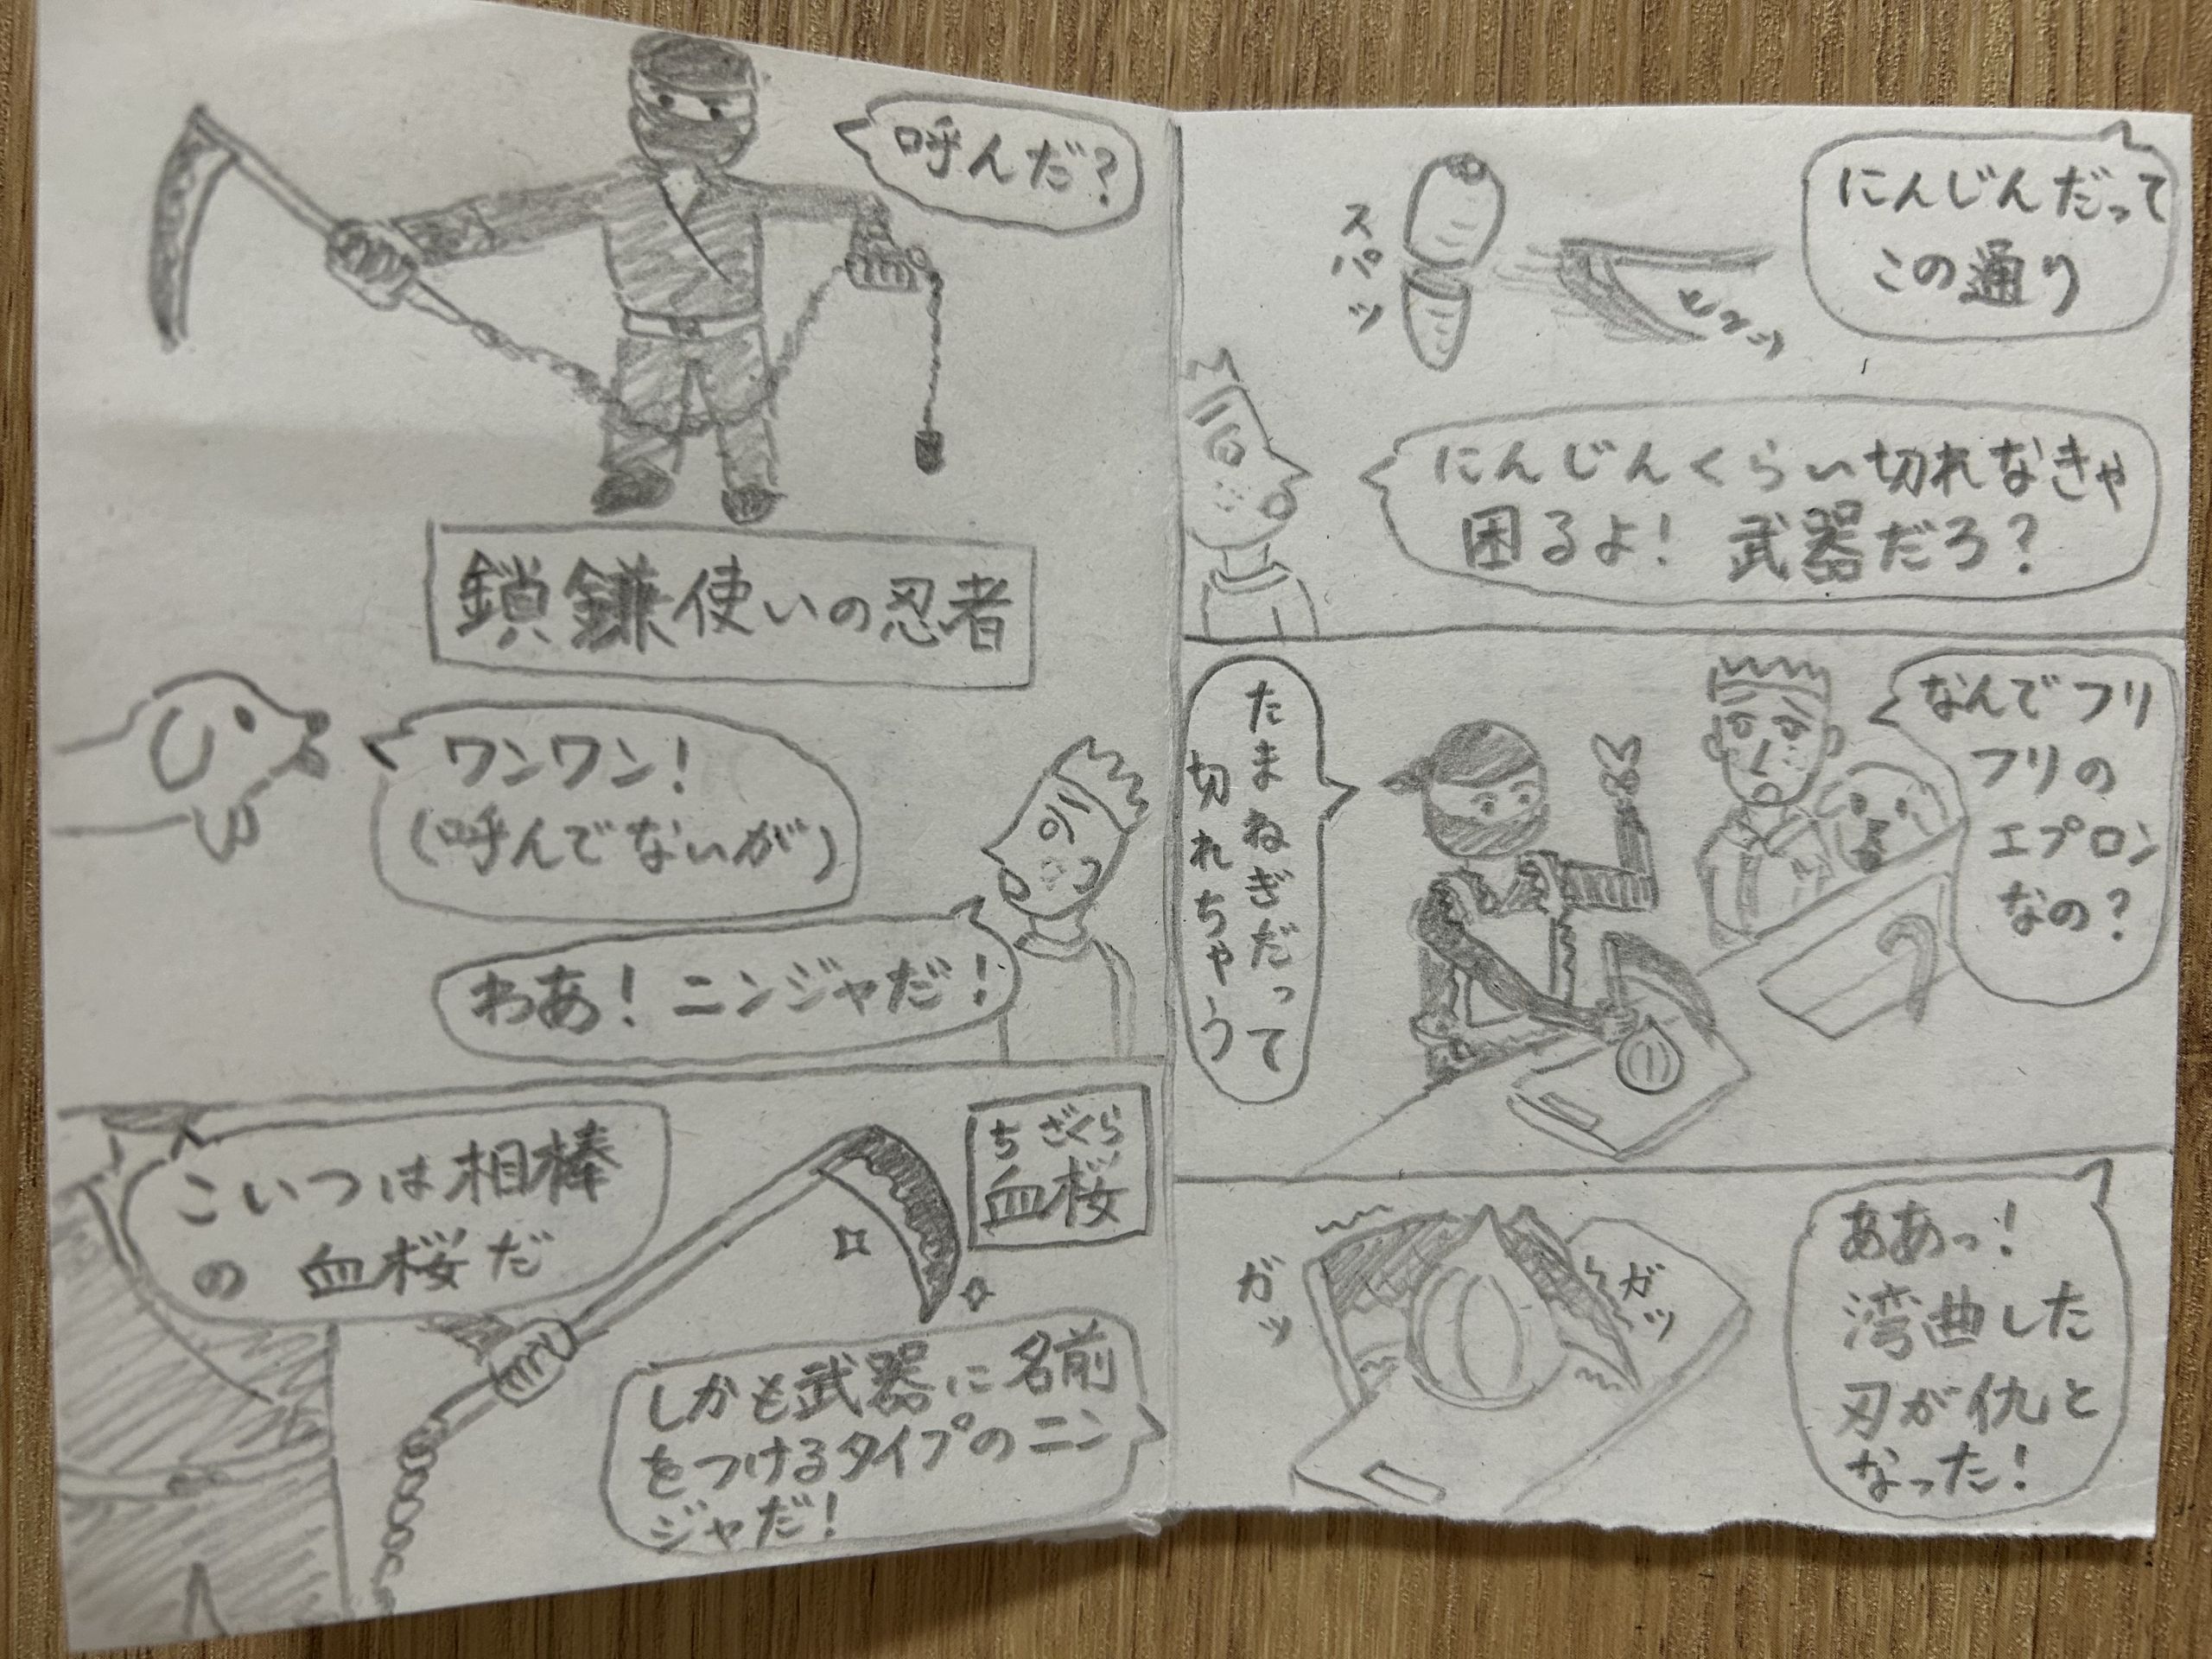 呼んだ?
鎖鎌使いの忍者
ワンワン!
(呼んでないが)
わあ! ニンジャだ!
こいつは相棒
の 血桜だ
ちざくら
血桜
しかも武器に名前
をつけるタイプのニン
ジャだ!
にんじんだって
この通り
スパッ
ヒュッ
にんじんくらい切れなきゃ
困るよ! 武器だろ?
なんでフリ
フリの
エプロン
なの?
たまねぎだって
切れちゃう
ああっ!
湾曲した
刃が仇と
なった!
ガッ
ガッ